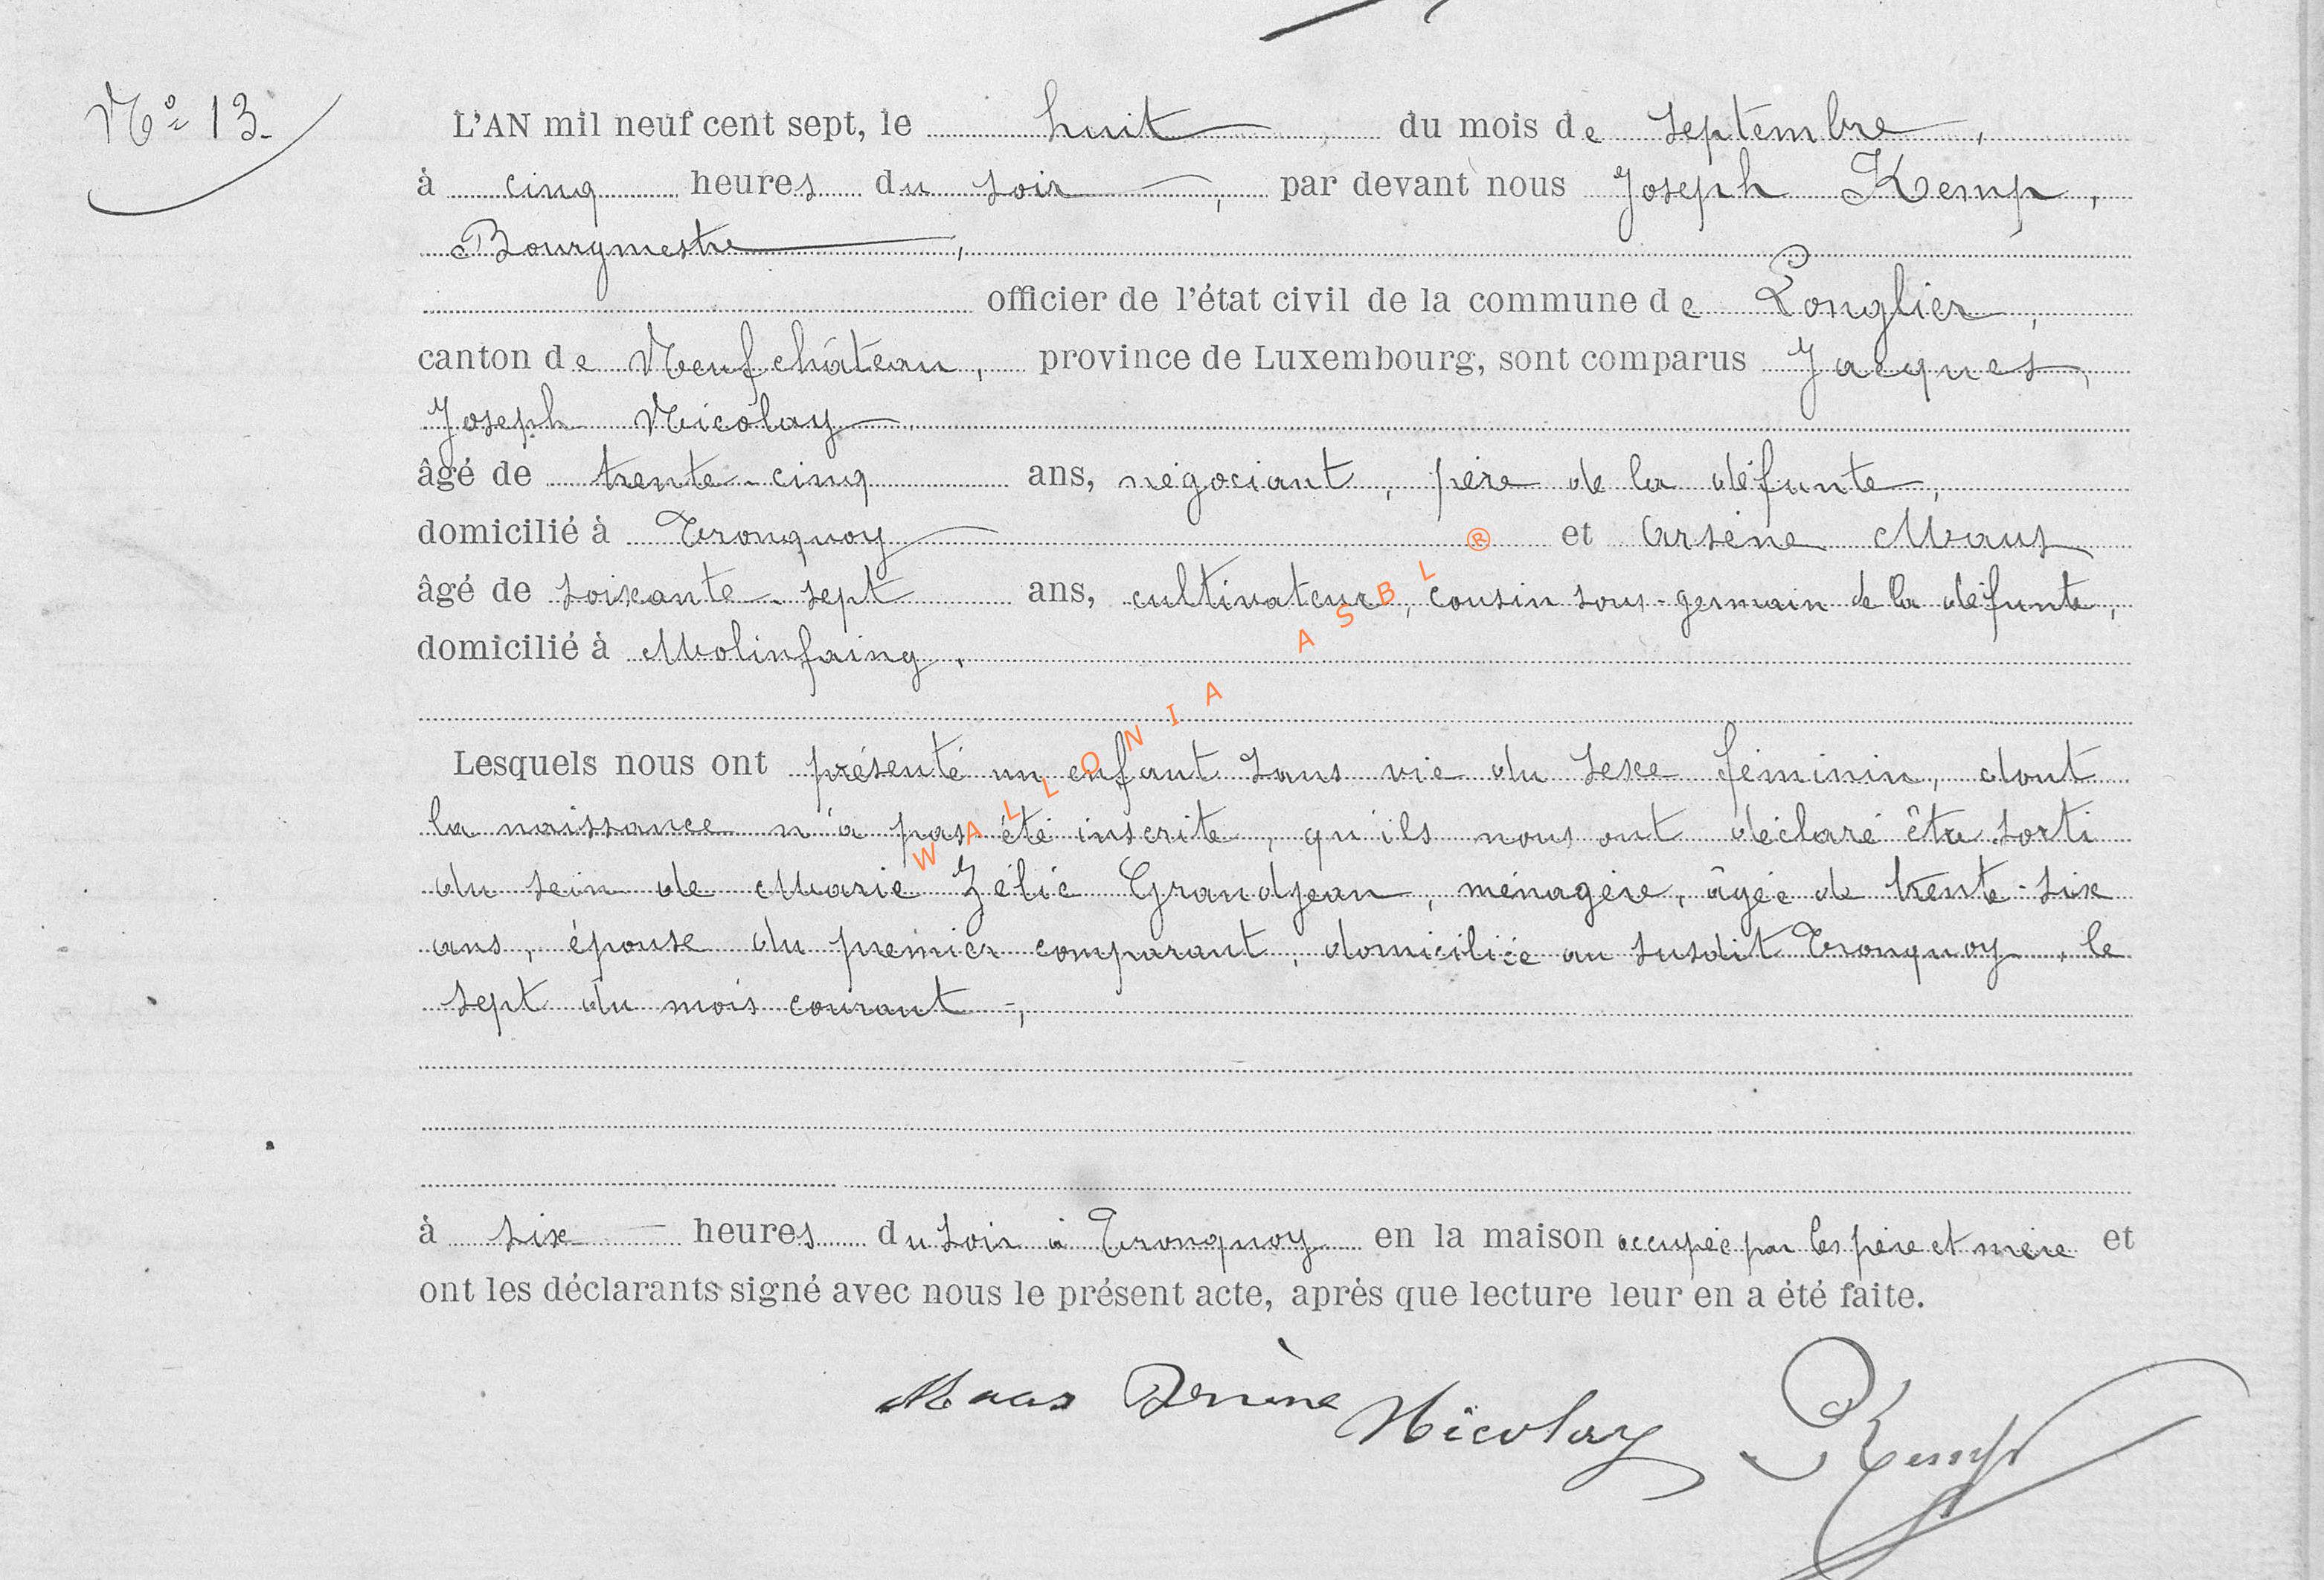 Nº 13.
L'AN mil neuf cent sept, le huit du mois de septembre,
à cinq heures du soir, par devant nous Joseph Kemp,
Bourgmestre,
officier de l'état civil de la commune de Longlier,
canton de Neufchâteau, province de Luxembourg, sont comparus Jacques,
Joseph Nicolay
âgé de trente-cinq ans, négociant, père de la défunte,
domicilié à Tronquoy et Arsène Maus
âgé de soixante-sept ans, cultivateur, cousin sous-germain de la défunte,
domicilié à Molinfaing.
Lesquels nous ont présenté un enfant sans vie du sexe féminin, dont
la naissance n'a pas été inscrite, qu'ils nous ont déclaré être sorti
du sein de Marie Zélie Grandjean, ménagère, âgée de trente-six
ans, épouse du premier comparant, domiciliée au susdit Tronquoy, le
sept du mois courant,
à six heures du soir à Tronquoy en la maison occupée par les père et mère et
ont les déclarants signé avec nous le présent acte, après que lecture leur en a été faite.
Maus Arsène Nicolay Kemp
WALLONIA ASBL ®